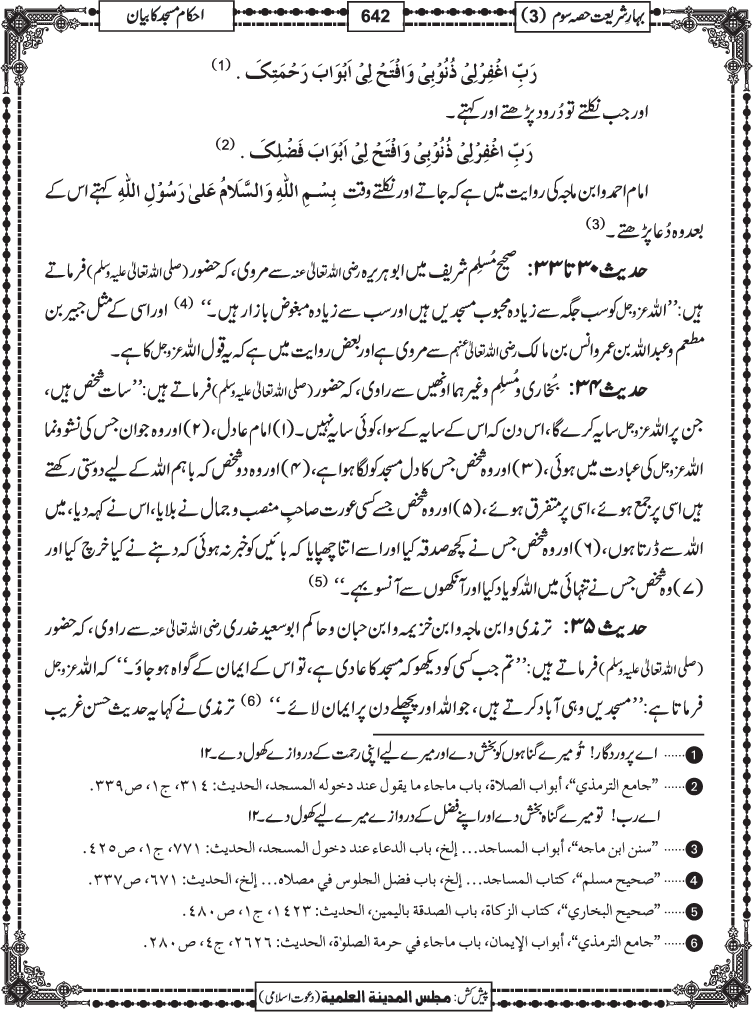 بہارِ شریعت حصہ سوم (3)
642
احکام مسجد کا بیان
رَبِّ اغْفِرْلِیْ ذُنُوْبِیْ وَافْتَحْ لِیْ اَبْوَابَ رَحْمَتِکَ . (1)
اور جب نکلتے تو دُرود پڑھتے اور کہتے ۔
رَبِّ اغْفِرْلِیْ ذُنُوْبِیْ وَافْتَحْ لِیْ اَبْوَابَ فَضْلِکَ . (2)
امام احمد و ابن ماجہ کی روایت میں ہے کہ جاتے اور نکلتے وقت بِسْمِ اللّٰہِ وَالسَّلَامُ عَلیٰ رَسُوْلِ اللّٰہِ کہتے اس کے
بعد وہ دُعا پڑھتے ۔ (3)
حدیث ۳۰ تا ۳۳: صحیح مُسلِم شریف میں ابوہریرہ رضی اللہ تعالیٰ عنہ سے مروی، کہ حضور (صلی اللہ تعالیٰ علیہ وسلم) فرماتے
ہیں: ’’اللہ عزوجل کو سب جگہ سے زیادہ محبوب مسجدیں ہیں اور سب سے زیادہ مبغوض بازار ہیں ۔‘‘ (4) اور اسی کے مثل جبیر بن
مطعم و عبداللہ بن عمر و انس بن مالک رضی اللہ تعالیٰ عنہم سے مروی ہے اور بعض روایت میں ہے کہ یہ قول اللہ عزوجل کا ہے۔
حدیث ۳۴: بُخاری و مُسلِم وغیرہما انھیں سے راوی، کہ حضور (صلی اللہ تعالیٰ علیہ وسلم) فرماتے ہیں: ’’سات شخص ہیں،
جن پر اللہ عزوجل سایہ کرے گا، اس دن کہ اس کے سایہ کے سوا، کوئی سایہ نہیں۔ (۱) امام عادل، (۲) اور وہ جوان جس کی نشوونما
اللہ عزوجل کی عبادت میں ہوئی، (۳) اور وہ شخص جس کا دل مسجد کو لگا ہوا ہے، (۴) اور وہ دو شخص کہ باہم اللہ کے لیے دوستی رکھتے
ہیں اسی پر جمع ہوئے، اسی پر متفرق ہوئے، (۵) اور وہ شخص جسے کسی عورت صاحبِ منصب و جمال نے بلایا، اس نے کہہ دیا، میں
اللہ سے ڈرتا ہوں، (۶) اور وہ شخص جس نے کچھ صدقہ کیا اور اسے اتنا چھپایا کہ بائیں کو خبر نہ ہوئی کہ دہنے نے کیا خرچ کیا اور
(۷) وہ شخص جس نے تنہائی میں اللہ کو یاد کیا اور آنکھوں سے آنسو بہے۔‘‘ (5)
حدیث ۳۵: ترمذی و ابن ماجہ و ابن خزیمہ و ابن حبان و حاکم ابوسعید خدری رضی اللہ تعالیٰ عنہ سے راوی، کہ حضور
(صلی اللہ تعالیٰ علیہ وسلم) فرماتے ہیں: ’’تم جب کسی کو دیکھو کہ مسجد کا عادی ہے، تو اس کے ایمان کے گواہ ہو جاؤ۔‘‘ کہ اللہ عزوجل
فرماتا ہے: ’’مسجدیں وہی آباد کرتے ہیں، جو اللہ اور پچھلے دن پر ایمان لائے۔‘‘ (6) ترمذی نے کہا یہ حدیث حسن غریب
1 ...... اے پروردگار! تُو میرے گناہوں کو بخش دے اور میرے لیے اپنی رحمت کے دروازے کھول دے۔۱۲
2 ...... ”جامع الترمذي“، أبواب الصلاة، باب ماجاء ما يقول عند دخوله المسجد، الحديث: ٣١٤، ج١، ص٣٣٩.
اے رب! تو میرے گناہ بخش دے اور اپنے فضل کے دروازے میرے لیے کھول دے۔۱۲
3 ...... ”سنن ابن ماجه“، أبواب المساجد... إلخ، باب الدعاء عند دخول المسجد، الحديث: ٧٧١، ج١، ص٤٢٥.
4 ...... ”صحيح مسلم“، كتاب المساجد... إلخ، باب فضل الجلوس في مصلاه... إلخ، الحديث: ٦٧١، ص٣٣٧.
5 ...... ”صحيح البخاري“، كتاب الزكاة، باب الصدقة باليمين، الحديث: ١٤٢٣، ج١، ص٤٨٠.
6 ...... ”جامع الترمذي“، أبواب الإيمان، باب ماجاء في حرمة الصلوٰة، الحديث: ٢٦٢٦، ج٤، ص٢٨٠.
پیش کش: مجلس المدينة العلمية (دعوت اسلامی)